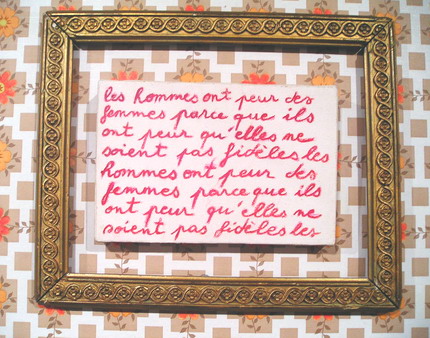 les hommes ont peur des
femmes parce que ils
ont peur qu'elles ne
soient pas fidèles les
hommes ont peur des
femmes parce que ils
ont peur qu'elles ne
soient pas fidèles les